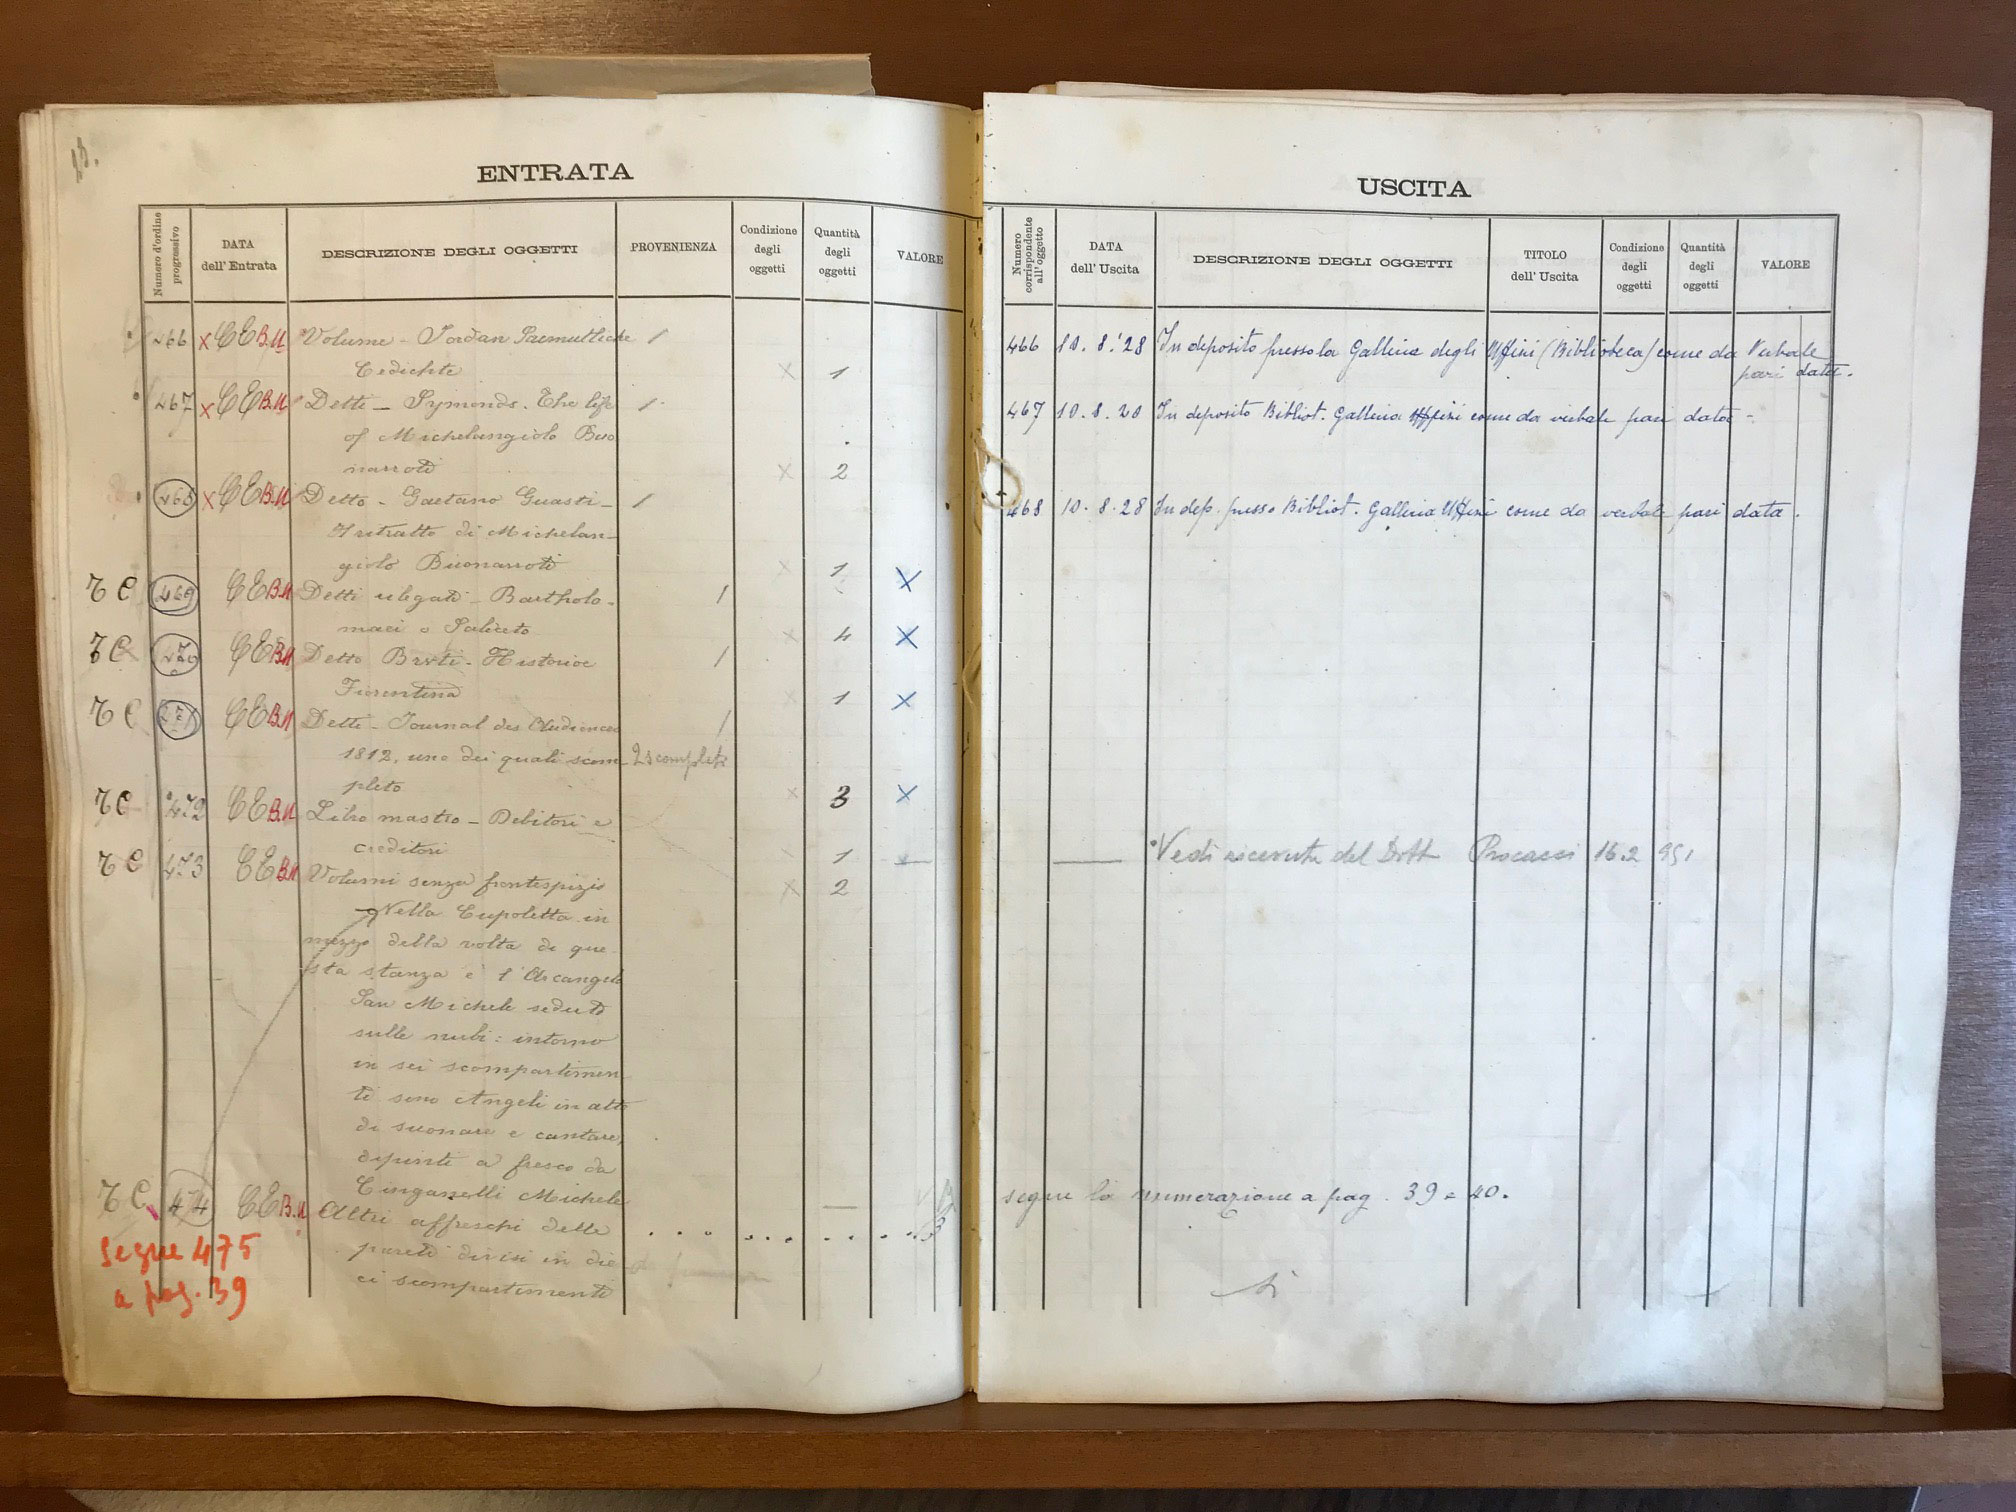 ENTRATA
Numero d'ordine progressivo
DATA dell' Entrata
DESCRIZIONE DEGLI OGGETTI
PROVENIENZA
Condizione degli oggetti
Quantità degli oggetti
VALORE
466 x CE B.U Volume - Jordan /
Gedichte x 1
467 x CE B.U Detti - Symonds. The life /
of Michelangiolo Buo
narroti x 2
468 x CE B.U Detto - Gaetano Guasti - /
Il ritratto di Michelan-
giolo Buonarroti x 1
TC 469 CE B.U Detti slegati - Bartholo- / X
maei a Saliceto x 4 X
TC 470 CE B.U Detto Bruti - Historiae /
Fiorentina 1 X
TC 471 CE B.U Detti - Journal des Audiences /
1812, uno dei quali scom- 2 scompleti
pleto x 3 X
TC 472 CE B.U Libro mastro - Debitori e
creditori 1 x
TC 473 CE B.U Volumi senza frontespizio x 2
Nella Cupoletta in
mezzo della volta di que-
sta stanza è l'Arcangelo
San Michele seduto
sulle nubi: intorno
in sei scompartimen
ti sono Angeli in atto
di suonare e cantare,
dipinti a fresco da
Cinganelli Michele
TC 474 CE B.U Altri affreschi delle
pareti divisi in die
ci scompartimenti
segue 475
a pag. 39
USCITA
Numero corrispondente all' oggetto
DATA dell' Uscita
DESCRIZIONE DEGLI OGGETTI
TITOLO dell' Uscita
Condizione degli oggetti
Quantità degli oggetti
VALORE
466 10.8.'28 In deposito presso la Galleria degli Uffizi (Biblioteca) come da Verbale
pari data.
467 10.8.28 In deposito Bibliot. Galleria Uffizi come da verbale pari data -
468 10.8.28 In dep. presso Bibliot. Galleria Uffizi come da verbale pari data.
Vedi ricevuta del Dott Procacci 16.2 951
segue la numerazione a pag. 39 e 40.